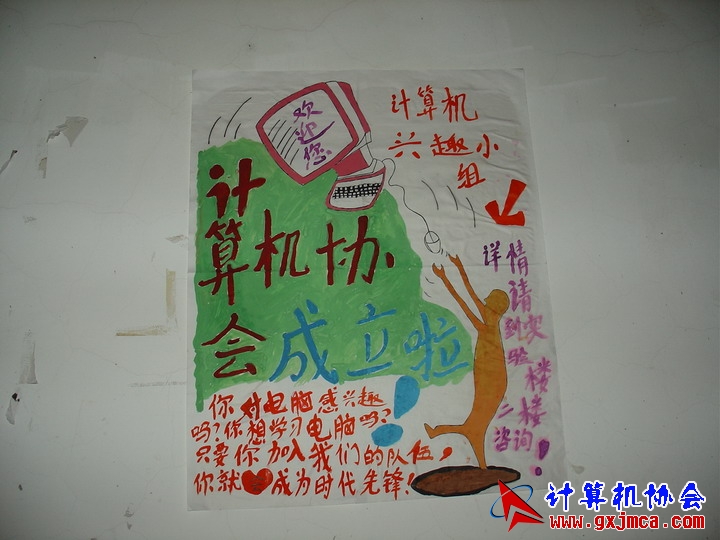 欢迎您
计算机
兴趣小
组
计
算机协
会成立啦！
详情
请
到实
验楼
二楼
咨询！
你对电脑感兴趣
吗？你想学习电脑吗？
只要你加入我们的队伍，
你就❤成为时代先锋！
计算机协会
www.gxjmca.com